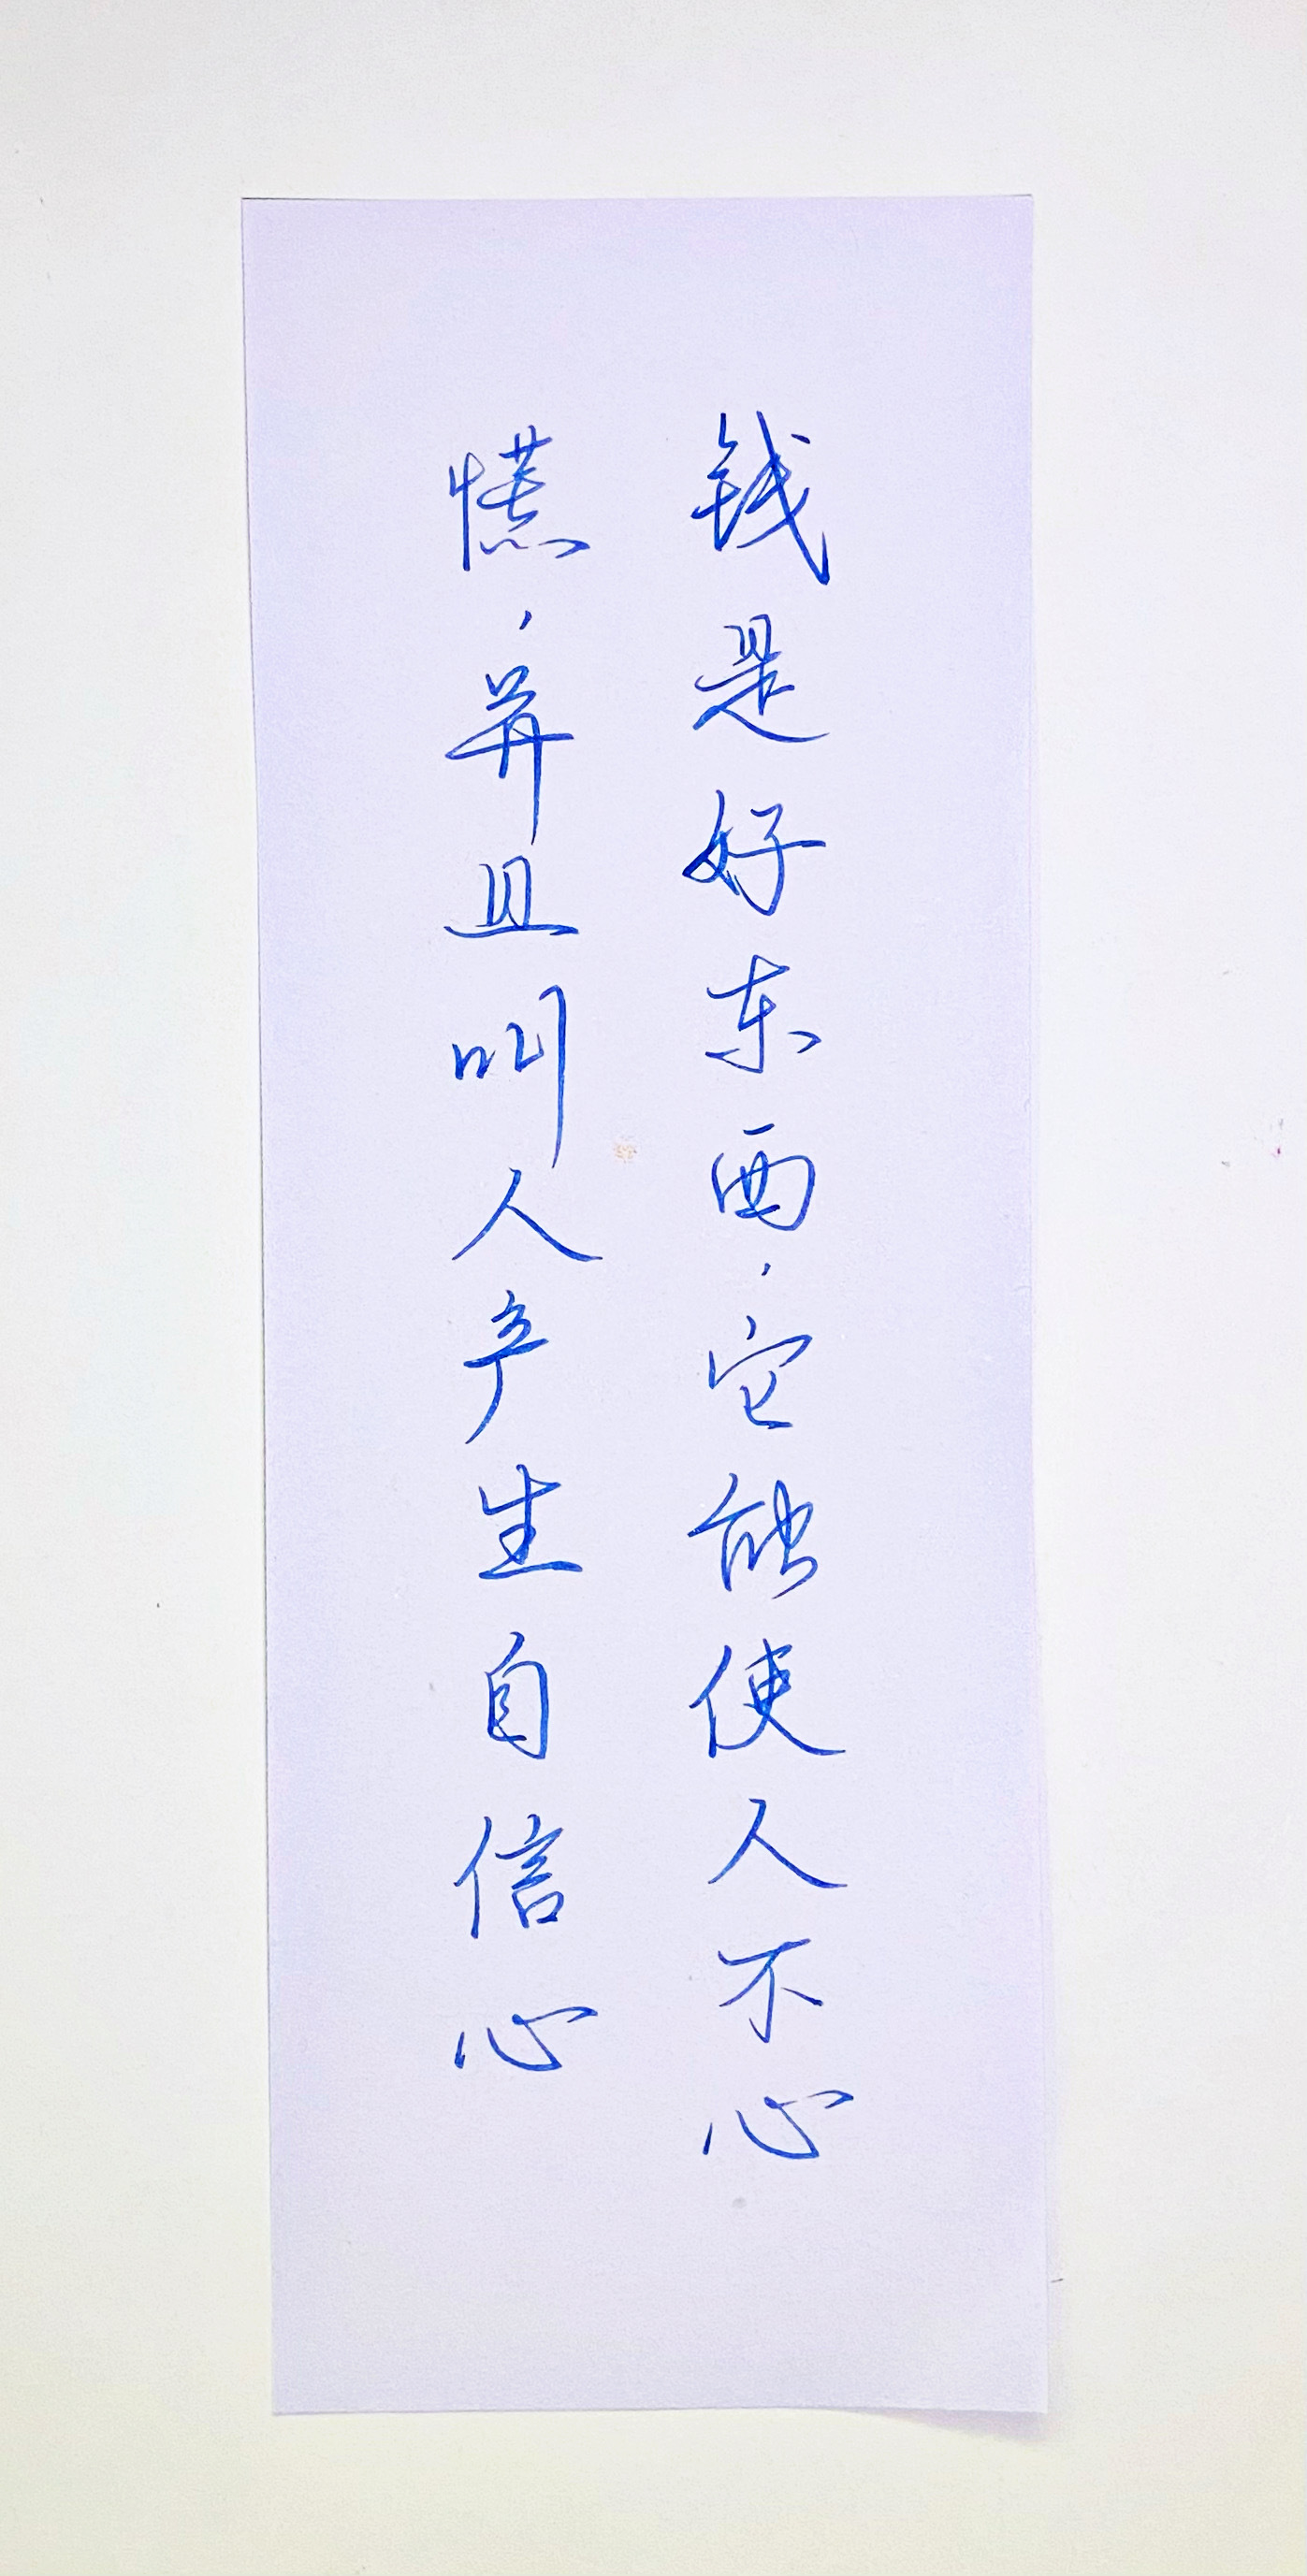 钱是好东西，它能使人不心
慌，并且叫人产生自信心